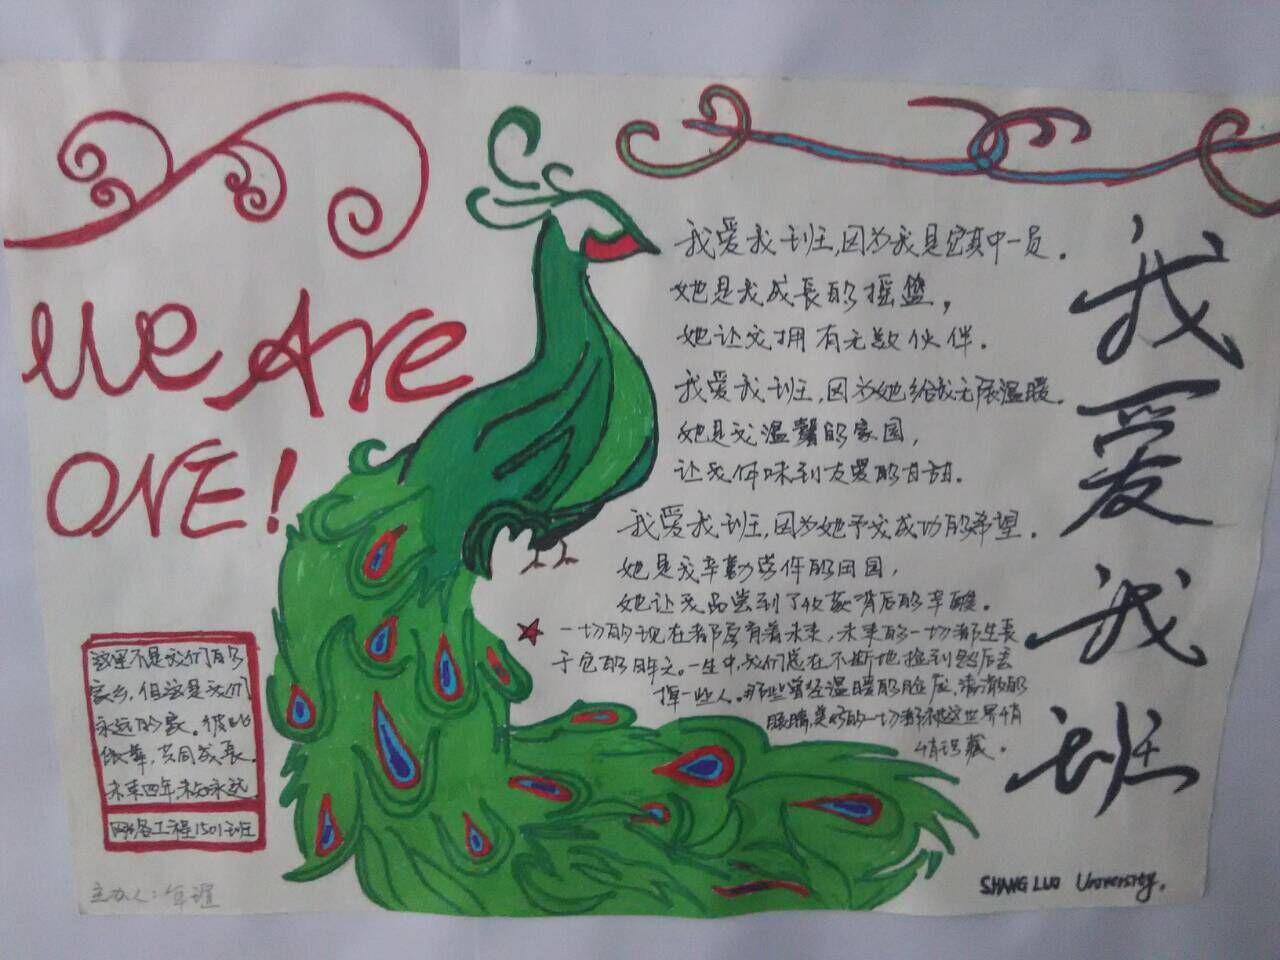 WE ARE
ONE!
我爱我班,因为我是它其中一员.
她是我成長的摇篮,
她让我拥有无数伙伴.
我爱我班,因为她给我无限温暖.
她是我温馨的家园,
让我体味到友爱的甘甜.
我爱我班,因为她予我成功的希望.
她是我辛勤劳作的田园,
她让我品尝到了收获背后的辛酸。
一切的现在都孕育着未来,未来的一切都生長
于它的昨天。一生中,我们总在不断地捡到然后丢
掉一些人。那些曾经温暖的脸庞,清澈的
眼睛,美好的一切都被这世界悄
悄掩藏。
我爱我班
这里不是我们的
家乡,但这是我们
永远的家。彼此
鼓舞,共同成長.
未来四年,
永远
网络工程1501班
主办人:
SHANG LUO University.